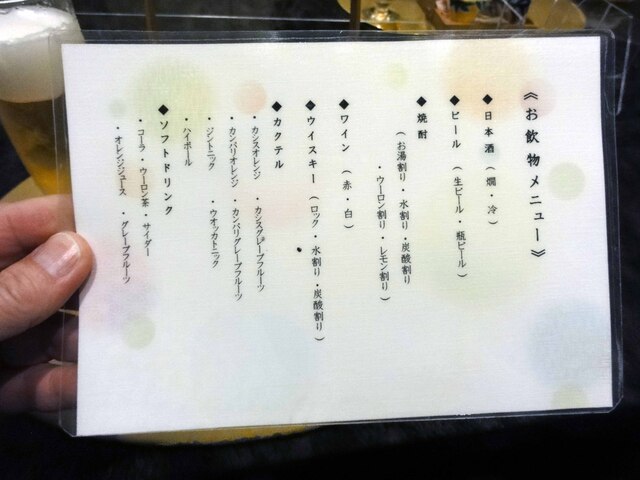 《お飲物メニュー》
◆日本酒（燗・冷）
◆ビール（生ビール・瓶ビール）
◆焼酎
（お湯割り・水割り・炭酸割り
・ウーロン割り・レモン割り）
◆ワイン（赤・白）
◆ウイスキー（ロック・水割り・炭酸割り）
◆カクテル
・カシスオレンジ ・カシスグレープフルーツ
・カンパリオレンジ ・カンパリグレープフルーツ
・ジントニック ・ウオッカトニック
・ハイボール
◆ソフトドリンク
・コーラ・ウーロン茶・サイダー
・オレンジジュース ・グレープフルーツ